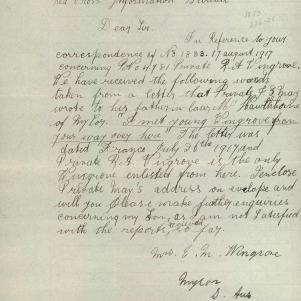 red Cross Information Bureau
Dear Sir.
In Reference to your
correspondence of No 1883. 17 august 1917
concerning No 4781 Private R. A Wingrove.
We have received the following words
taken from a letter that Private F. S. May
wrote to his father in law Mr Hawthorne
of Myloy. "I met young Wingrove from
your way over here" The letter was
dated France July 28th 1917 and
Private R. A Wingrove is the only
Wingrove enlisted from here. I enclose
Private May's address on envelope and
will you Please make further enquiries
concerning my Son, as I am not Satisfied
with the reports received so far.
Mrs E. M. Wingrove
S. Aus